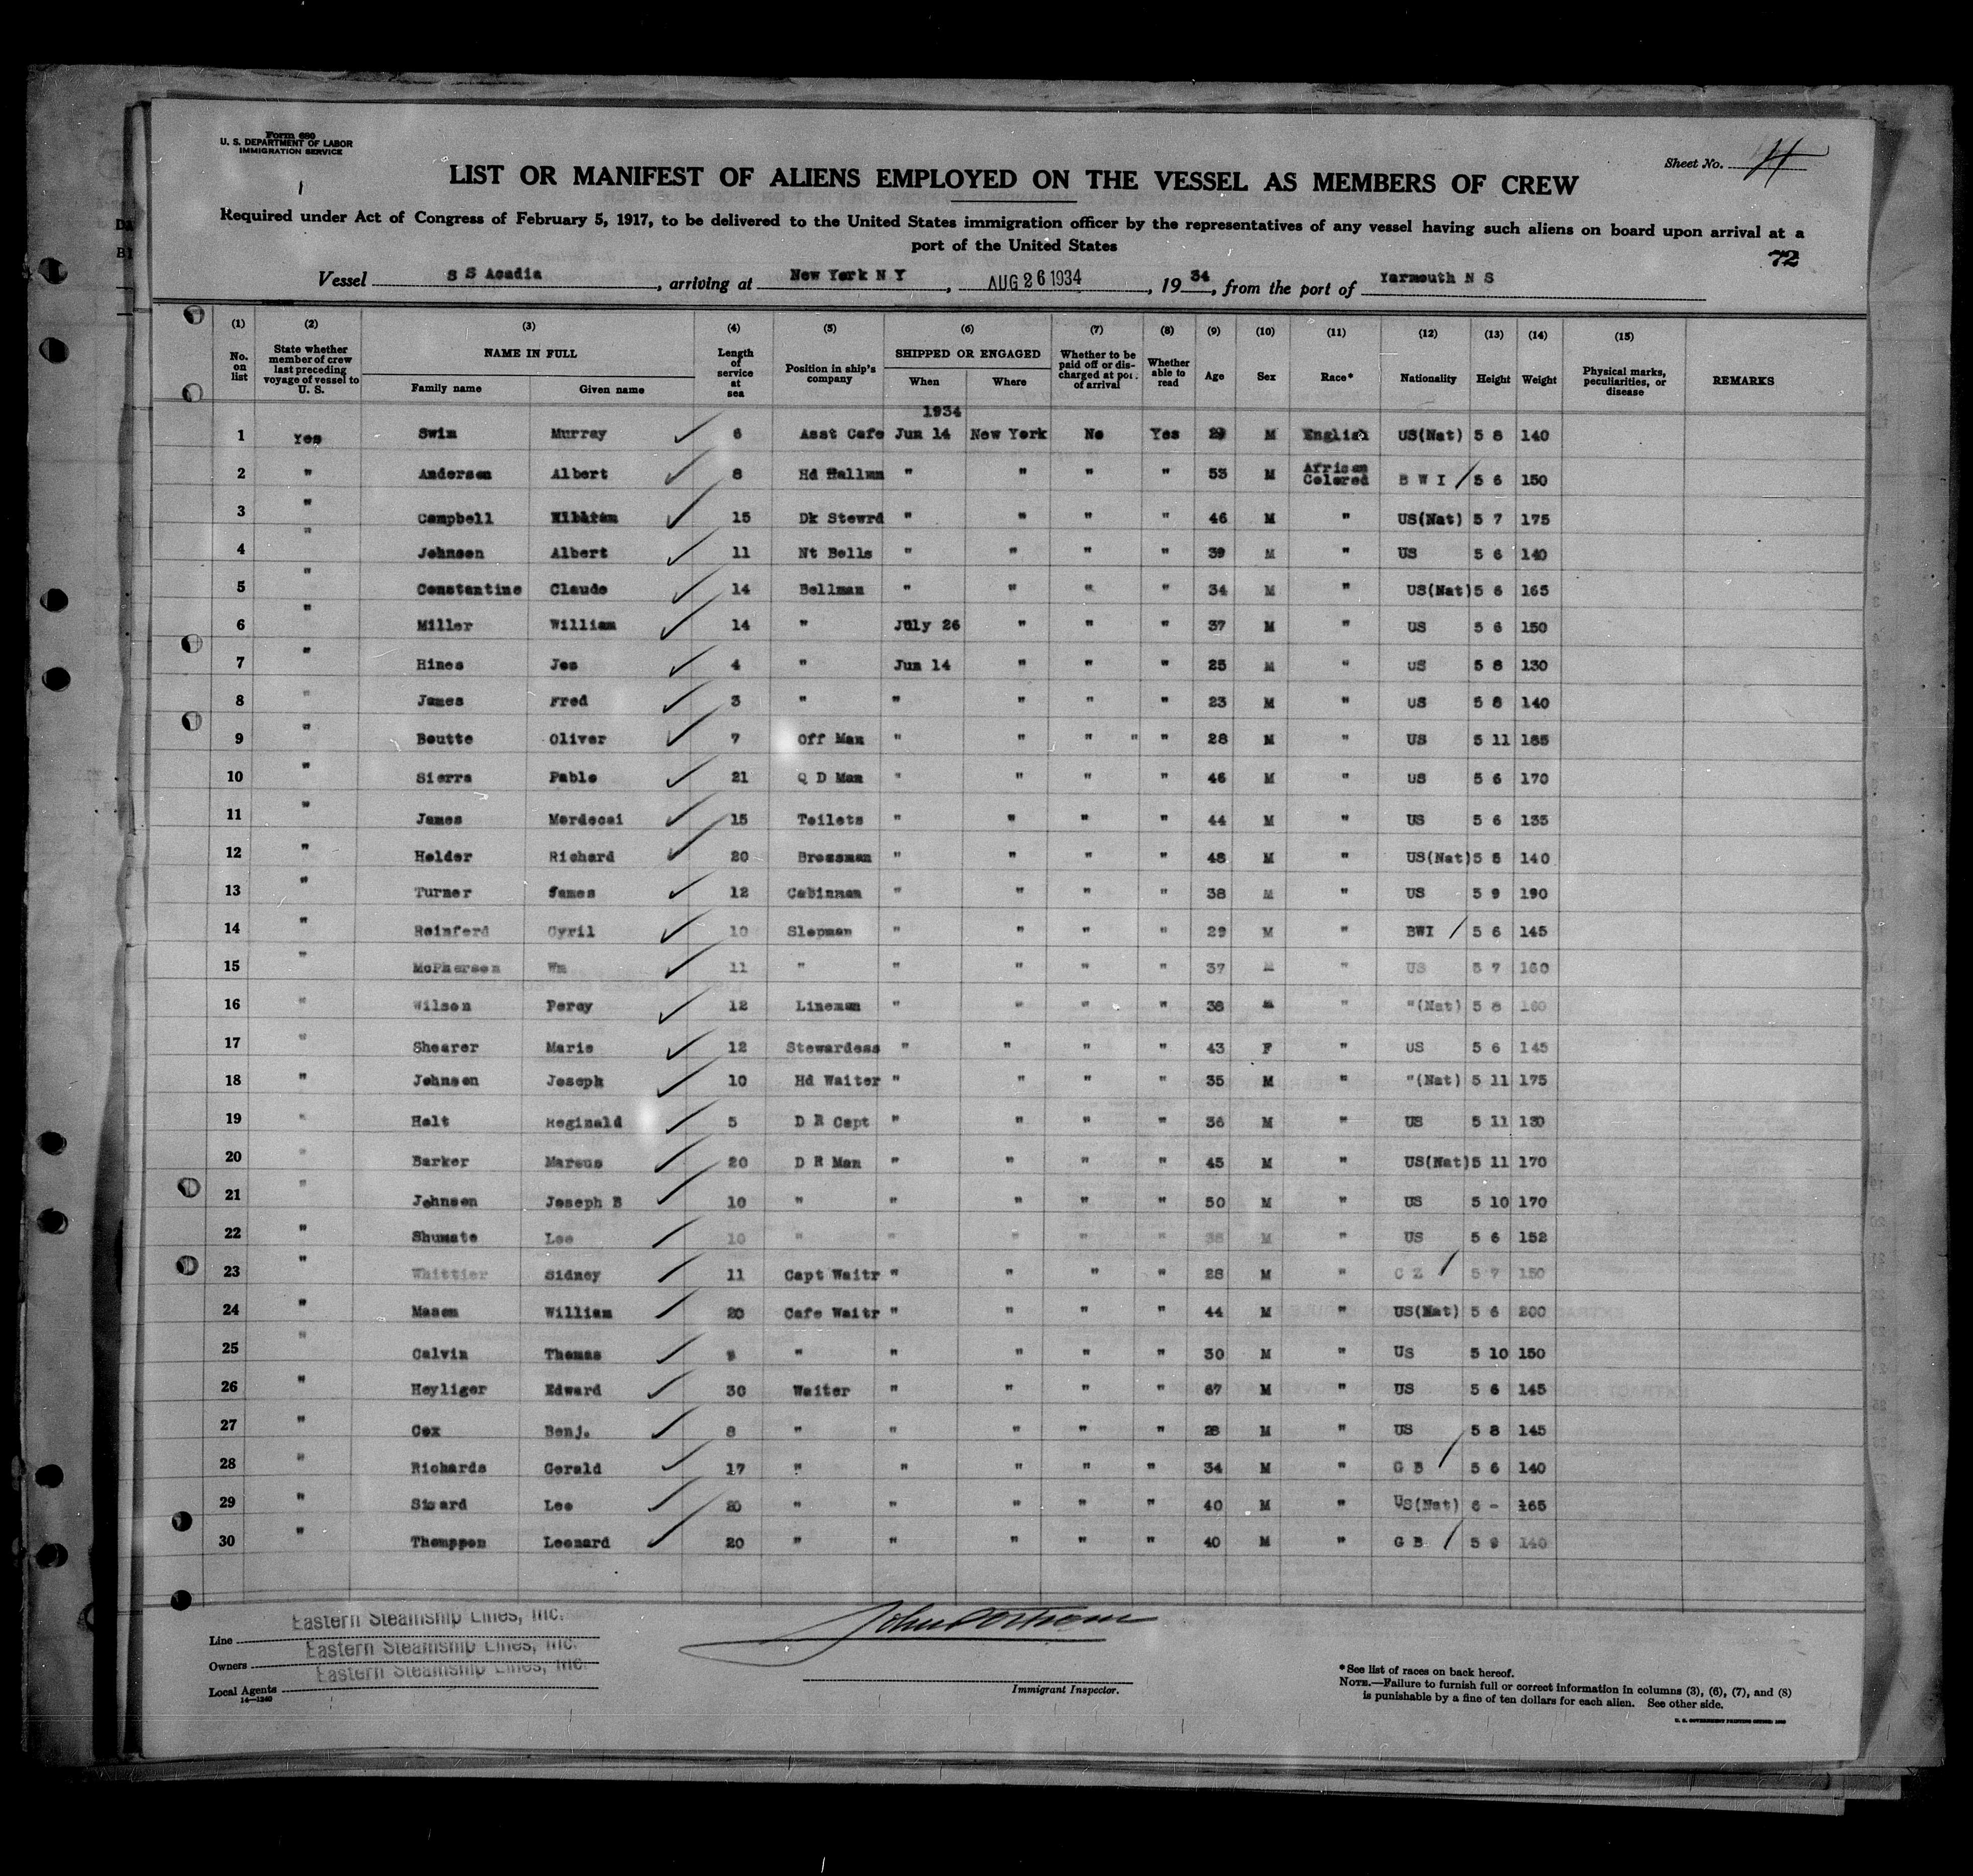 Form 680
U. S. DEPARTMENT OF LABOR
IMMIGRATION SERVICE
Sheet No. 4
LIST OR MANIFEST OF ALIENS EMPLOYED ON THE VESSEL AS MEMBERS OF CREW
Required under Act of Congress of February 5, 1917, to be delivered to the United States immigration officer by the representatives of any vessel having such aliens on board upon arrival at a
port of the United States
72
Vessel S S Acadia, arriving at New York N Y, AUG 26 1934, 1934, from the port of Yarmouth N S
(1) (2) (3) (4) (5) (6) (7) (8) (9) (10) (11) (12) (13) (14) (15)
No. on list State whether member of crew last preceding voyage of vessel to U. S. NAME IN FULL Family name Given name Length of service at sea Position in ship's company SHIPPED OR ENGAGED When Where Whether to be paid off or discharged at port of arrival Whether able to read Age Sex Race* Nationality Height Weight Physical marks, peculiarities, or disease REMARKS
1934
1 Yes Swim Murray 6 Asst Cafe Jun 14 New York No Yes M English US(Nat) 5 8 140
2 " Andersen Albert 8 Hd Hallmn " " " " 53 M African Colored B W I 5 6 150
3 " Campbell William 15 Dk Stewrd " " " " 46 M " US(Nat) 5 7 175
4 " Johnson Albert 11 Nt Bells " " " " 39 M " US 5 6 140
5 " Constantine Claude 14 Bellman " " " " 34 M " US(Nat) 5 6 165
6 " Miller William 14 " July 26 " " " 37 M " US 5 6 150
7 " Hines Jos 4 " Jun 14 " " " 25 M " US 5 8 130
8 " James Fred 3 " " " " " 23 M " US 5 8 140
9 " Boutte Oliver 7 Off Man " " " " " 28 M " US 5 11 185
10 " Sierra Pablo 21 Q D Man " " " " 46 M " US 5 6 170
11 " James Mordecai 15 Toilets " " " " 44 M " US 5 6 135
12 " Holder Richard 20 Brossman " " " " 48 M " US(Nat) 5 8 140
13 " Turner James 12 Cabinman " " " " 38 M " US 5 9 190
14 " Reinford Cyril 10 Slopman " " " " 29 M " BWI 5 6 145
15 " McPherson Wm 11 " " " " " 37 M " US 5 7 160
16 " Wilson Percy 12 Lineman " " " " 38 M " "(Nat) 5 8 160
17 " Shearer Marie 12 Stewardess " " " " 43 F " US 5 6 145
18 " Johnson Joseph 10 Hd Waiter " " " " 35 M " "(Nat) 5 11 175
19 " Holt Reginald 5 D R Capt " " " " 36 M " US 5 11 130
20 " Barker Marcus 20 D R Man " " " " 45 M " US(Nat) 5 11 170
21 " Johnson Joseph B 10 " " " " " 50 M " US 5 10 170
22 " Shumate Lee 10 " " " " " 38 M " US 5 6 152
23 " Whittier Sidney 11 Capt Waitr " " " " 28 M " C Z 5 7 150
24 " Mason William 20 Cafe Waitr " " " " 44 M " US(Nat) 5 6 200
25 " Calvin Thomas " " " " " 30 M " US 5 10 150
26 " Heyliger Edward 30 Waiter " " " " 67 M " US 5 6 145
27 " Cox Benj. 8 " " " " " 28 M " US 5 8 145
28 " Richards Gerald 17 " " " " " 34 M " G B 5 6 140
29 " Simard Leo 20 " " " " " 40 M " US(Nat) 6 - 165
30 " Thomppon Leonard 20 " " " " " 40 M " G B 5 9 140
Line Eastern Steamship Lines, Inc.
Owners Eastern Steamship Lines, Inc.
Local Agents Eastern Steamship Lines, Inc.
14—1240
Immigrant Inspector.
*See list of races on back hereof.
NOTE.—Failure to furnish full or correct information in columns (3), (6), (7), and (8)
is punishable by a fine of ten dollars for each alien. See other side.